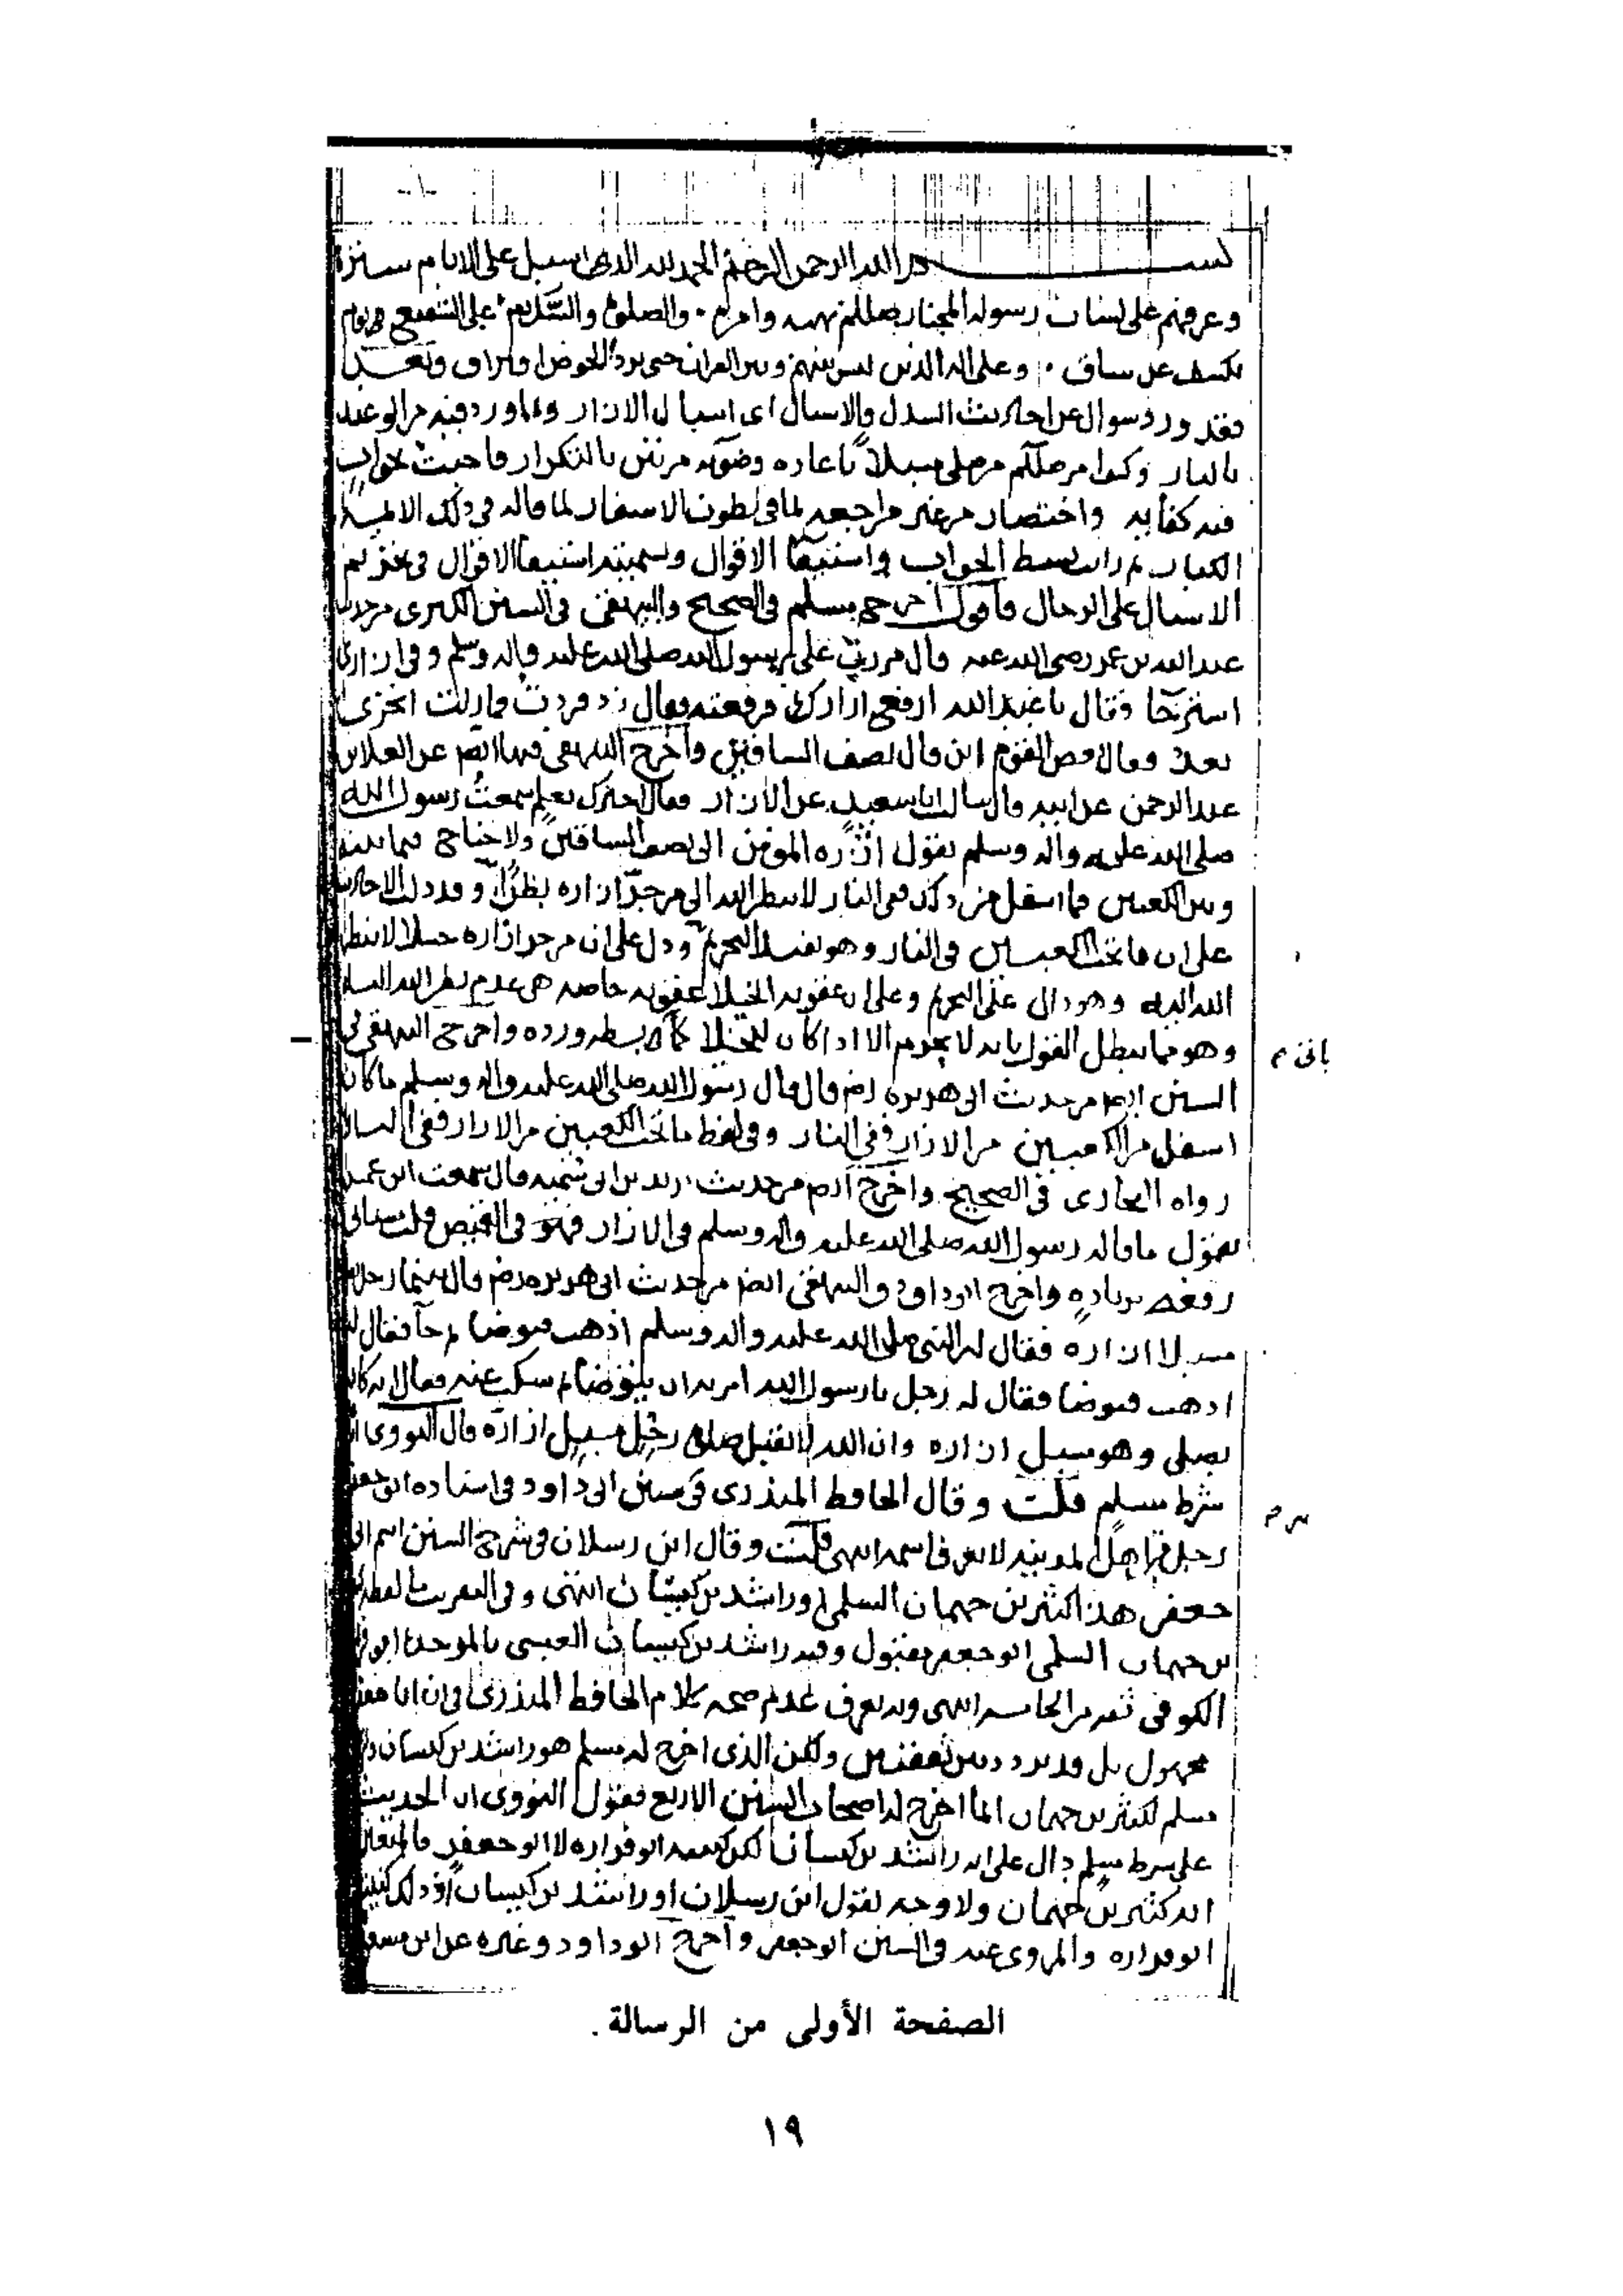 بسم الله الرحمن الرحيم الحمد لله الذي اسبل على الانام ستره
وعرفهم على لسان رسوله المختار نهيه وامره والصلوة والسلام على الشفيع يوم
يكشف عن ساق وعلى اله الذين ليس بينهم وبين القران حتى يرد الحوض افتراق وبعد
فقد ورد سوال عن احاديث السدل والاسبال اي اسبال الازار وما ورد فيه من الوعيد
بالنار وكذا من صلى مسبلا باعادة وضوئه مرتين بالتكرار فاجبت بجواب
فيه كفايه واختصار من غير مراجعه لما في بطون الاسفار لما قاله في ذلك الايمة
الكبار ثم رايت بسط الجواب واستيفا الاقوال وسميته استيفا الاقوال في تحريم
الاسبال على الرجال فاقول اخرج مسلم في الصحيح والبيهقي في السنن الكبرى من حديث
عبد الله بن عمر رضي الله عنه قال مررت على رسول الله صلى الله عليه واله وسلم وفي ازاري
استرخا فقال يا عبد الله ارفع ازارك فرفعته فقال زد فزدت فما زلت اتحرى
بعد فقال بعض القوم اين قال نصف الساقين واخرج البيهقي فيها ايضا عن العلا بن
عبد الرحمن عن ابيه قال سالت ابا سعيد عن الازار فقال اخبرك بعلم سمعت رسول الله
صلى الله عليه واله وسلم يقول ازره المومن الى نصف الساقين ولا جناح فيما بينه
وبين الكعبين فما اسفل من ذلك ففي النار لا ينظر الله الى من جر ازاره بطرا وقد دل الاحاديث
على ان ما تحت الكعبين في النار وهو يفيد التحريم ودل على ان من جر ازاره خيلا لا ينظر
الله اليه وهو دال على التحريم وعلى ان عقوبه الخيلا عقوبه خاصه هي عدم نظر الله اليه
وهو مما يبطل القول بانه لا يحرم الا اذا كان للخيلا كما ياتي بسطه ورده واخرج البيهقي في
السنن ايضا من حديث ابي هريره رضي قال قال رسول الله صلى الله عليه واله وسلم ما كان
اسفل من الكعبين من الازار ففي النار وفي لفظ ما تحت الكعبين من الازار ففي النار
رواه البخاري في الصحيح واخرج ايضا من حديث يزيد بن ابي سميه قال سمعت ابن عمر
يقول ما قاله رسول الله صلى الله عليه واله وسلم في الازار فهو في القميص قلت
رفعه بزياده واخرج ابو داود والبيهقي ايضا من حديث ابي هريره رضي قال بينما رجل
مسبلا ازاره فقال له النبي صلى الله عليه واله وسلم اذهب فتوضا ثم جا فقال له
اذهب فتوضا فقال له رجل يا رسول الله امرته ان يتوضا ثم سكت عنه فقال انه كان
يصلي وهو مسبل ازاره وان الله لا يقبل صلوة رجل مسبل ازاره قال النووي انه
شرط مسلم قلت وقال الحافظ المنذري في سنن ابي داود في اسناده ابو جعفر
رجل من اهل المدينه لا يعرف اسمه انتهى قلت وقال ابن رسلان في شرح السنن اسم ابي
جعفر هذا كثير بن جهمان السلمي او راشد بن كيسان انتهى وفي التقريب ما لفظه
بن جهمان السلمي ابو جعفر مقبول وفيه راشد بن كيسان العبسي بالموحده ابو فزاره
الكوفي ثقه من الخامسه انتهى وبه يعرف عدم صحه كلام الحافظ المنذري في ان ابا جعفر
مجهول بل قد تردد بين ثقتين ولكن الذي اخرج له مسلم هو راشد بن كيسان
مسلم لكثير بن جهمان انما اخرج له اصحاب السنن الاربع فقول النووي ان الحديث
على شرط مسلم دال على انه راشد بن كيسان لكن كنيته ابو فزاره لا ابو جعفر فالمتعين
انه كثير بن جهمان ولا وجه لقول ابن رسلان او راشد بن كيسان اذ ذلك كنيته
ابو فزاره والمروي عنه في السنن ابو جعفر واخرج ابو داود وغيره عن ابن مسعود
الصفحة الأولى من الرسالة.
١٩